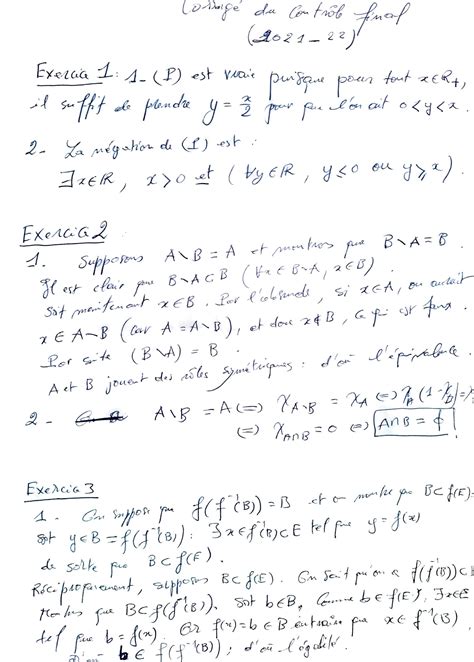 Corrigé du Contrôle final
(2021-22)
Exercice 1 : 1- (P) est vraie puisque pour tout x∈R+,
il suffit de prendre y = x/2 pour que l'on ait 0<y<x.
2- La négation de (1) est :
∃x∈R, x>0 et (∀y∈R, y≤0 ou y≥x).
Exercice 2
1. Supposons A\B = A et montrons que B\A = B.
Il est clair que B\A⊂B (∀x∈B\A, x∈B).
Soit maintenant x∈B. Par l'absurde, si x∈A, on aurait
x∈A\B (car A = A\B), et donc x∉B, ce qui est faux.
Par suite (B\A) = B.
A et B jouent des rôles symétriques : d'où l'équivalence.
2- A\B = A ⇔ χ_{A\B} = χ_A ⇔ χ_A(1-χ_B)=
⇔ χ_{A∩B} = 0 ⇔ A∩B = ∅
Exercice 3
1. On suppose que f(f⁻¹(B)) = B et on montre que B⊂f(E).
Soit y∈B = f(f⁻¹(B)) : ∃x∈f⁻¹(B)⊂E tel que y = f(x)
de sorte que B⊂f(E).
Réciproquement, supposons B⊂f(E). On sait qu'on a f(f⁻¹(B))⊂
Montrons que B⊂f(f⁻¹(B)). Soit b∈B, comme b∈f(E), ∃x∈E
tel que b = f(x). Or f(x)=b∈B entraine que x∈f⁻¹(B).
D'où b∈f(f⁻¹(B)) ; d'où l'égalité.